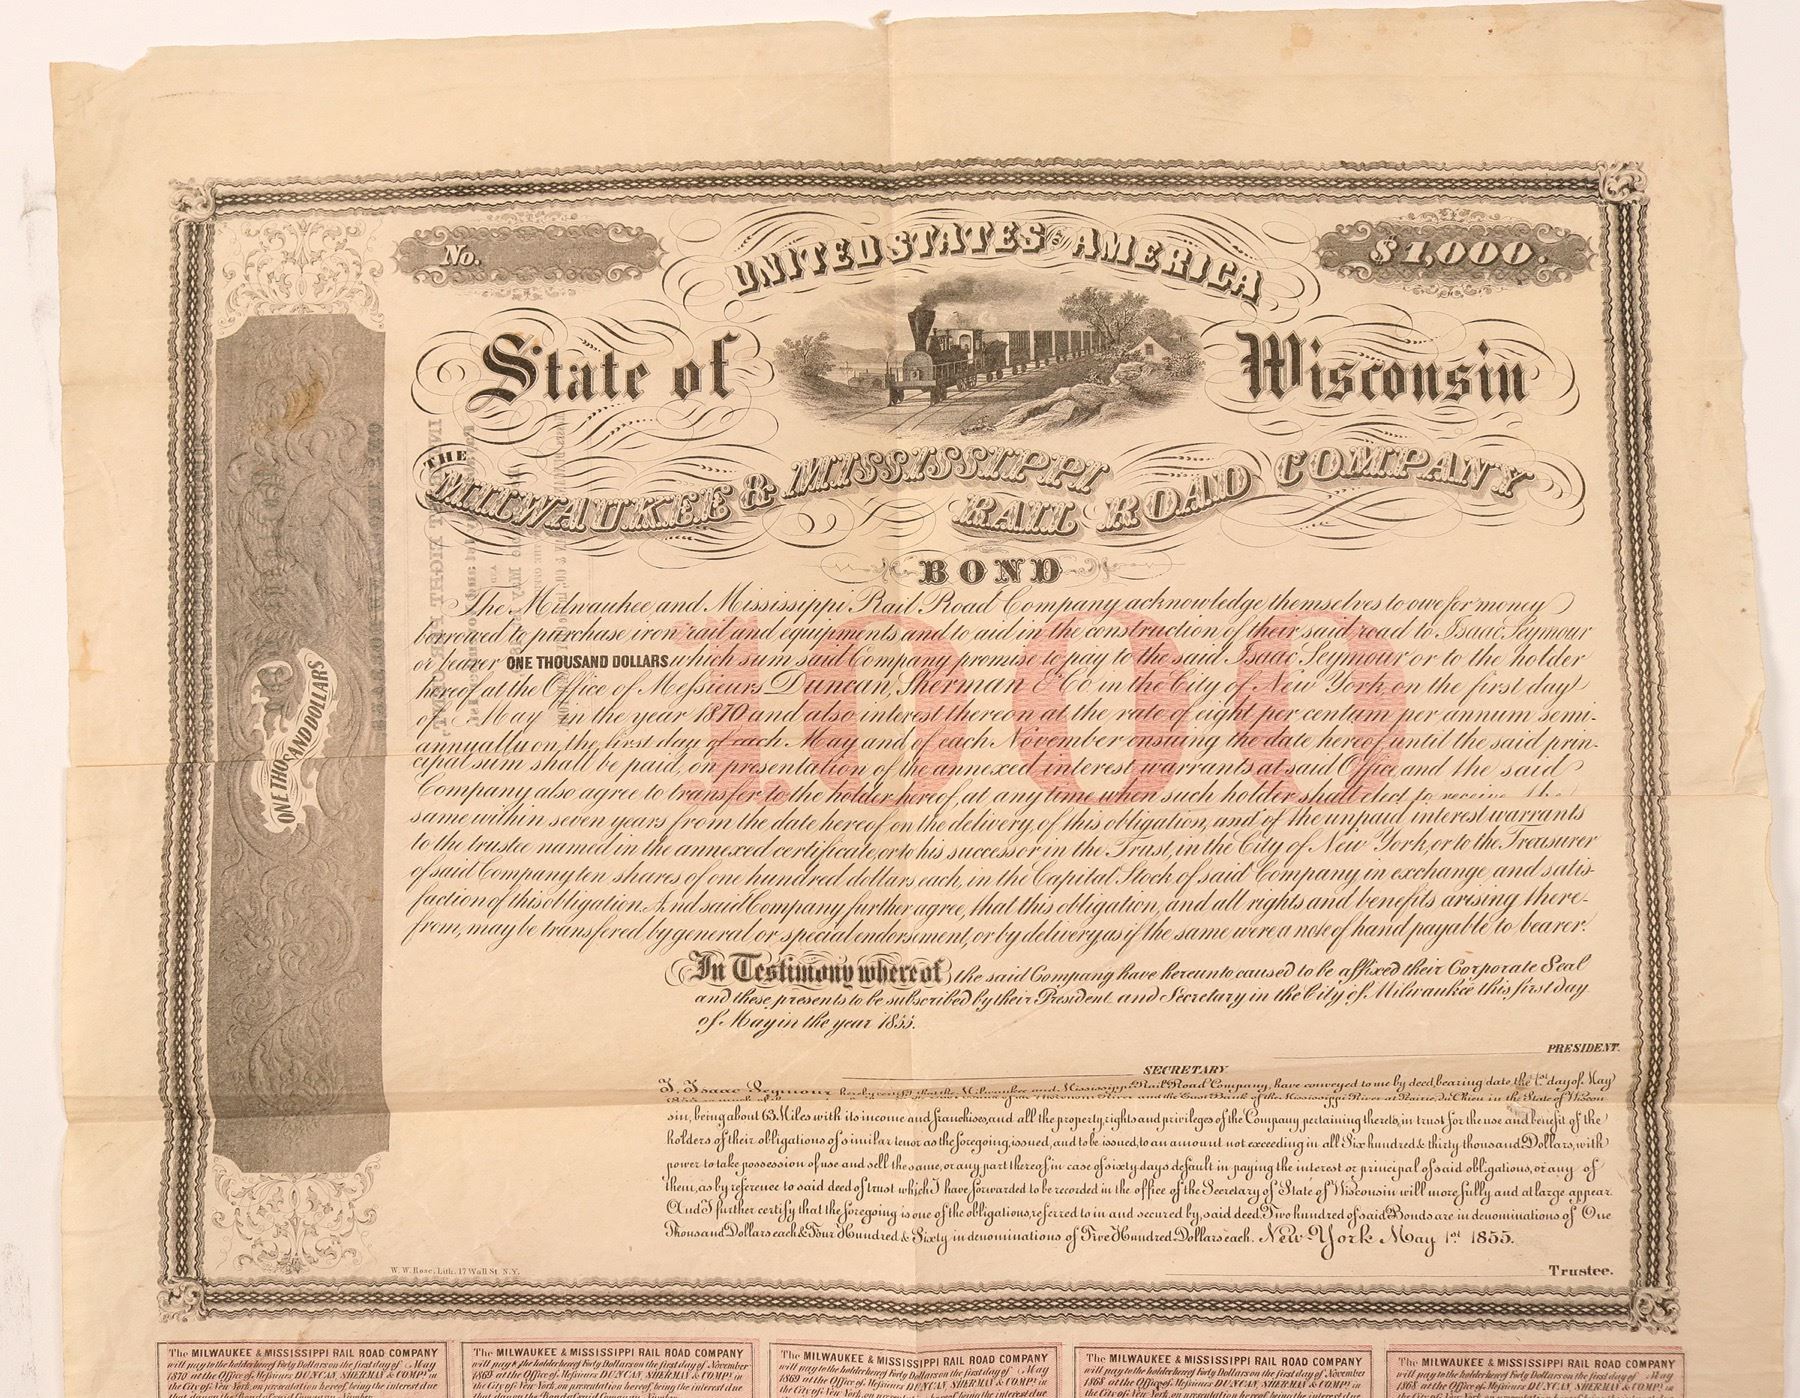 No.
UNITED STATES OF AMERICA
$1,000.
State of Wisconsin
THE
MILWAUKEE & MISSISSIPPI
RAIL ROAD COMPANY
BOND
ONE THOUSAND DOLLARS
The Milwaukee and Mississippi Rail Road Company acknowledge themselves to owe for money
borrowed to purchase iron rail and equipments and to aid in the construction of their said road to Isaac Seymour
or bearer ONE THOUSAND DOLLARS which sum said Company promise to pay to the said Isaac Seymour or to the holder
hereof at the Office of Messieurs Duncan, Sherman & Co. in the City of New York on the first day
of May in the year 1870 and also interest thereon at the rate of eight per centum per annum semi-
annually on the first day of each May and of each November ensuing the date hereof until the said prin-
cipal sum shall be paid, on presentation of the annexed interest warrants at said Office, and the said
Company also agree to transfer to the holder hereof, at any time when such holder shall elect to receive the
same within seven years from the date hereof on the delivery, of this obligation, and of the unpaid interest warrants
to the trustee named in the annexed certificate, or to his successor in the Trust, in the City of New York, or to the Treasurer
of said Company ten shares of one hundred dollars each, in the Capital Stock of said Company in exchange and satis-
faction of this obligation. And said Company further agree, that this obligation, and all rights and benefits arising there-
from, may be transfered by general or special endorsement, or by delivery as if the same were a note of hand payable to bearer.
1000
In Testimony whereof the said Company have hereunto caused to be affixed their Corporate Seal
and these presents to be subscribed by their President and Secretary in the City of Milwaukee this first day
of May in the year 1855.
PRESIDENT.
SECRETARY
I, Isaac Seymour hereby certify that the Milwaukee and Mississippi Rail Road Company, have conveyed to me by deed, bearing date the 1st day of May
and the East Bank of the Mississippi River at Prairie du Chien in the State of Wiscon
sin, being about 63 Miles with its income and franchises, and all the property, rights and privileges of the Company pertaining thereto, in trust for the use and benefit of the
holders of their obligations of similar tenor as the foregoing, issued, and to be issued, to an amount not exceeding in all Six hundred & thirty thousand Dollars, with
power to take possession of use and sell the same, or any part thereof in case of sixty days default in paying the interest or principal of said obligations, or any of
them, as by reference to said deed of trust which I have forwarded to be recorded in the office of the Secretary of State of Wisconsin will more fully and at large appear
And I further certify that the foregoing is one of the obligations, referred to in and secured by, said deed. Two hundred of said Bonds are in denominations of One
Thousand Dollars each & Four Hundred & Sixty in denominations of Five Hundred Dollars each. New-York May 1st 1855.
Trustee.
W. W. Rose, Lith. 17 Wall St. N.Y.
The MILWAUKEE & MISSISSIPPI RAIL ROAD COMPANY
will pay to the holder hereof Forty Dollars on the first day of May
1870 at the Office of Messieurs DUNCAN SHERMAN & COMP.y in
the City of New York, on presentation hereof being the interest due
The MILWAUKEE & MISSISSIPPI RAIL ROAD COMPANY
will pay to the holder hereof Forty Dollars on the first day of November
1869 at the Office of Messieurs DUNCAN SHERMAN & COMP.y in
the City of New York, on presentation hereof being the interest due
The MILWAUKEE & MISSISSIPPI RAIL ROAD COMPANY
will pay to the holder hereof Forty Dollars on the first day of May
1869 at the Office of Messieurs DUNCAN SHERMAN & COMP.y in
the City of New York, on presentation hereof being the interest due
The MILWAUKEE & MISSISSIPPI RAIL ROAD COMPANY
will pay to the holder hereof Forty Dollars on the first day of November
1868 at the Office of Messieurs DUNCAN SHERMAN & COMP.y in
the City of New York, on presentation hereof being the interest due
The MILWAUKEE & MISSISSIPPI RAIL ROAD COMPANY
will pay to the holder hereof Forty Dollars on the first day of May
1868 at the Office of Messieurs DUNCAN SHERMAN & COMP.y in
the City of New York, on presentation hereof being the interest due